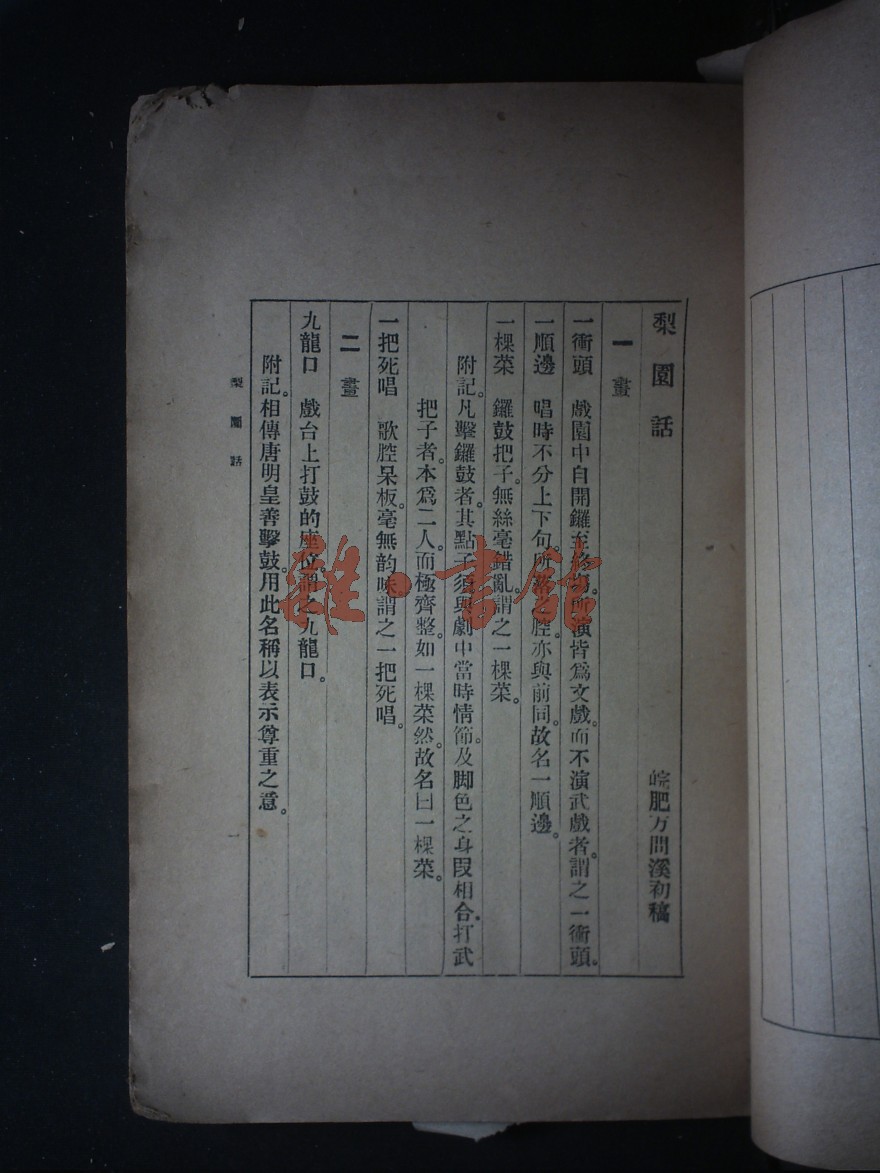 梨園話
皖肥方問溪初稿
一畫
一衝頭　戲園中自開鑼至終場。所演皆爲文戲。而不演武戲者。謂之一衝頭。
一順邊　唱時不分上下句。所落之腔。亦與前同。故名一順邊。
一棵菜　鑼鼓把子。無絲毫錯亂。謂之一棵菜。
附記。凡擊鑼鼓者。其點子須與劇中當時情節。及脚色之身段相合。打武
把子者。本爲二人。而極齊整。如一棵菜然。故名曰一棵菜。
一把死唱　歌腔呆板。毫無韵味。謂之一把死唱。
二畫
九龍口　戲台上打鼓的座位。謂之九龍口。
附記。相傳唐明皇善擊鼓。用此名稱以表示尊重之意。
梨園話
一
雜·書館